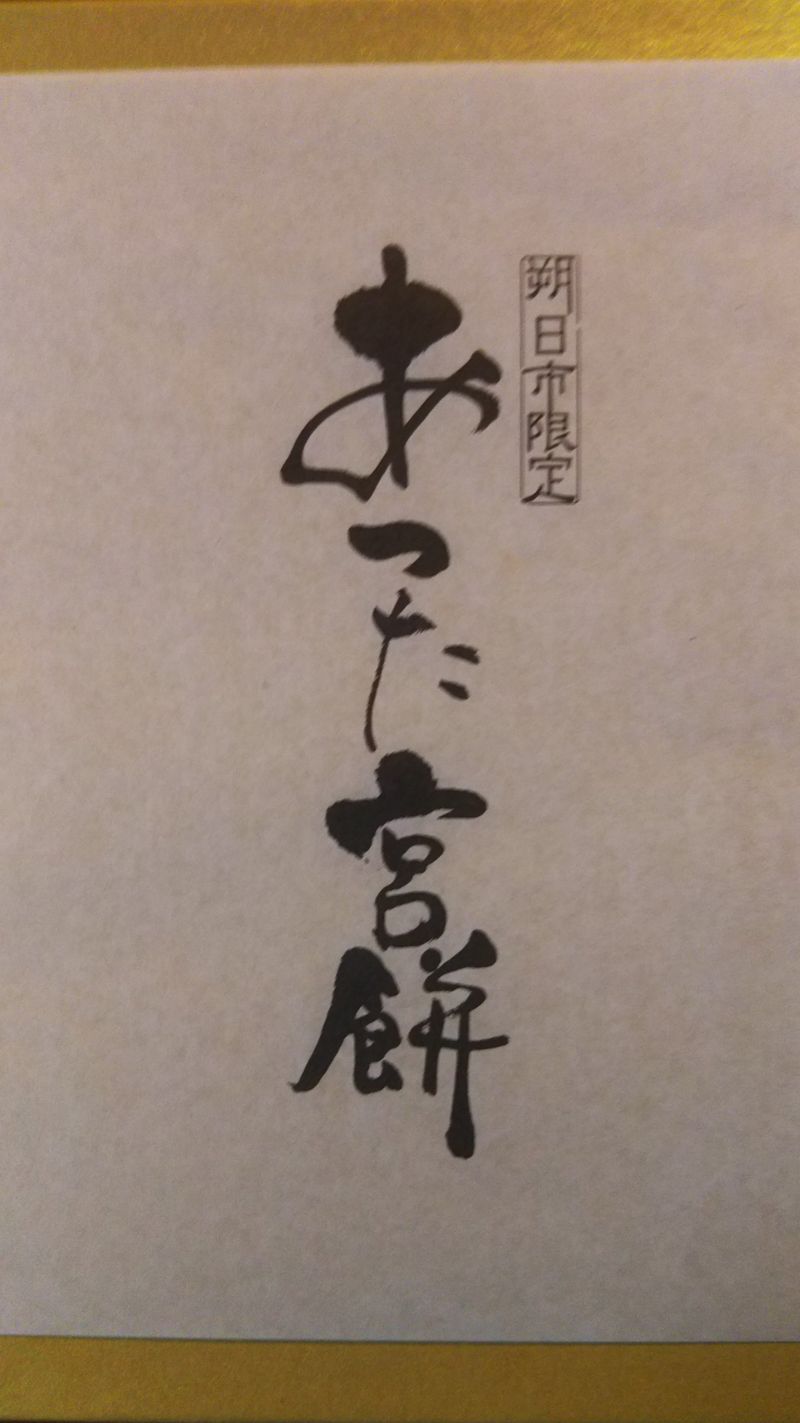 朔日市限定
あつた宮餅